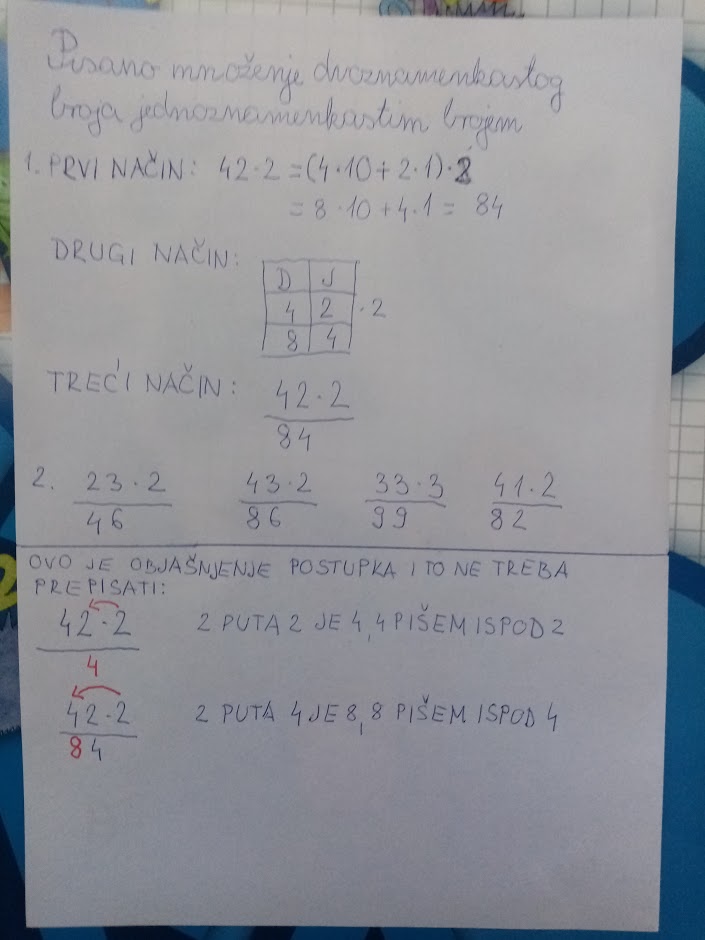 Pisano množenje dvoznamenkastog
broja jednoznamenkastim brojem
1. PRVI NAČIN: 42·2 =(4·10+2·1)·2
= 8·10+4·1= 84
DRUGI NAČIN:
D J
4 2 ·2
8 4
TREĆI NAČIN:
42·2
84
2. 23·2 43·2 33·3 41·2
46 86 99 82
OVO JE OBJAŠNJENJE POSTUPKA I TO NE TREBA
PREPISATI:
42·2 2 PUTA 2 JE 4, 4 PIŠEM ISPOD 2
4
42·2 2 PUTA 4 JE 8, 8 PIŠEM ISPOD 4
84